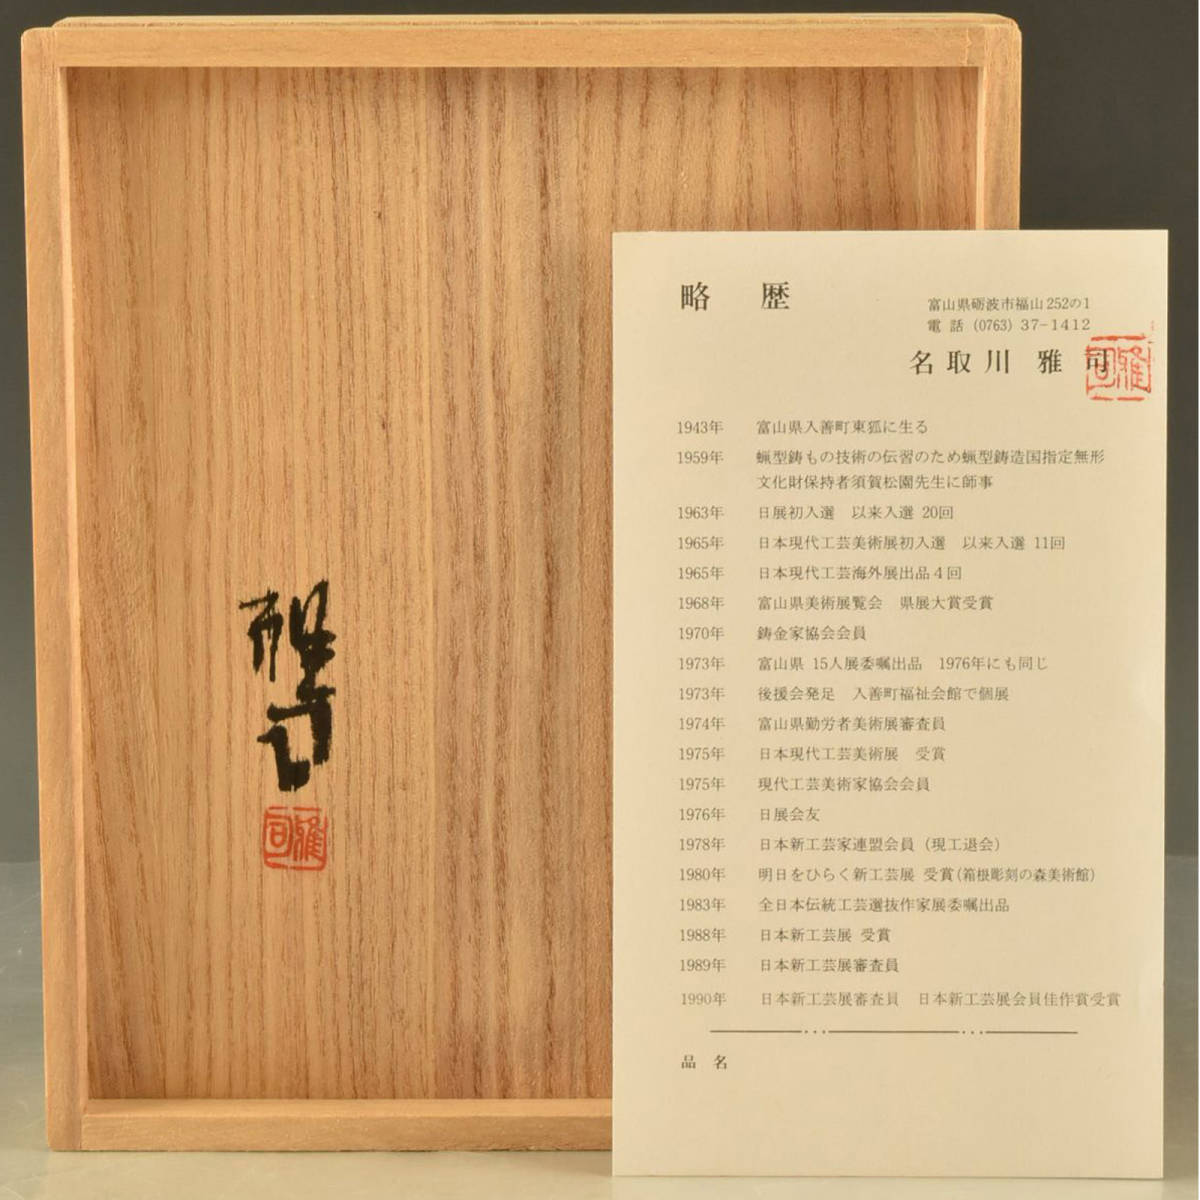 雅司
雅司
略歴
富山県砺波市福山252の1
電話 (0763) 37-1412
名取川 雅司
雅司
1943年 富山県入善町東狐に生る
1959年 蝋型鋳もの技術の伝習のため蝋型鋳造国指定無形
文化財保持者須賀松園先生に師事
1963年 日展初入選 以来入選 20回
1965年 日本現代工芸美術展初入選 以来入選 11回
1965年 日本現代工芸海外展出品4回
1968年 富山県美術展覧会 県展大賞受賞
1970年 鋳金家協会会員
1973年 富山県 15人展委嘱出品 1976年にも同じ
1973年 後援会発足 入善町福祉会館で個展
1974年 富山県勤労者美術展審査員
1975年 日本現代工芸美術展 受賞
1975年 現代工芸美術家協会会員
1976年 日展会友
1978年 日本新工芸家連盟会員(現工退会)
1980年 明日をひらく新工芸展 受賞(箱根彫刻の森美術館)
1983年 全日本伝統工芸選抜作家展委嘱出品
1988年 日本新工芸展 受賞
1989年 日本新工芸展審査員
1990年 日本新工芸展審査員 日本新工芸展会員佳作賞受賞
品名